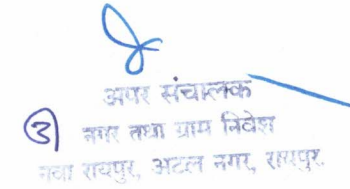 अपर संचालक
3 नगर तथा ग्राम निवेश
नवा रायपुर, अटल नगर, रायपुर